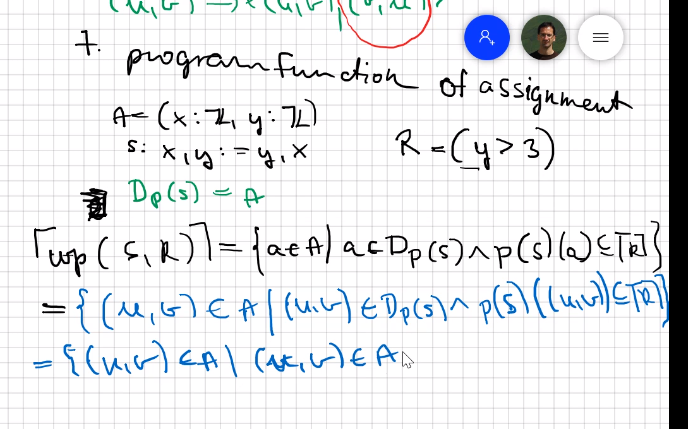 (u,v) → {(u,v), (v,u)}
7. program function of assignment
A = (x:ℤ, y:ℤ)
s: x,y := y,x
R = (y > 3)
D_p(s) = A
⌈wp(S,R)⌉ = {a∈A | a∈D_p(s) ∧ p(s)(a) ⊆ ⌈R⌉}
= {(u,v) ∈ A | (u,v) ∈ D_p(s) ∧ p(s)((u,v)) ⊆ ⌈R⌉}
= {(u,v) ∈ A | (u,v) ∈ A